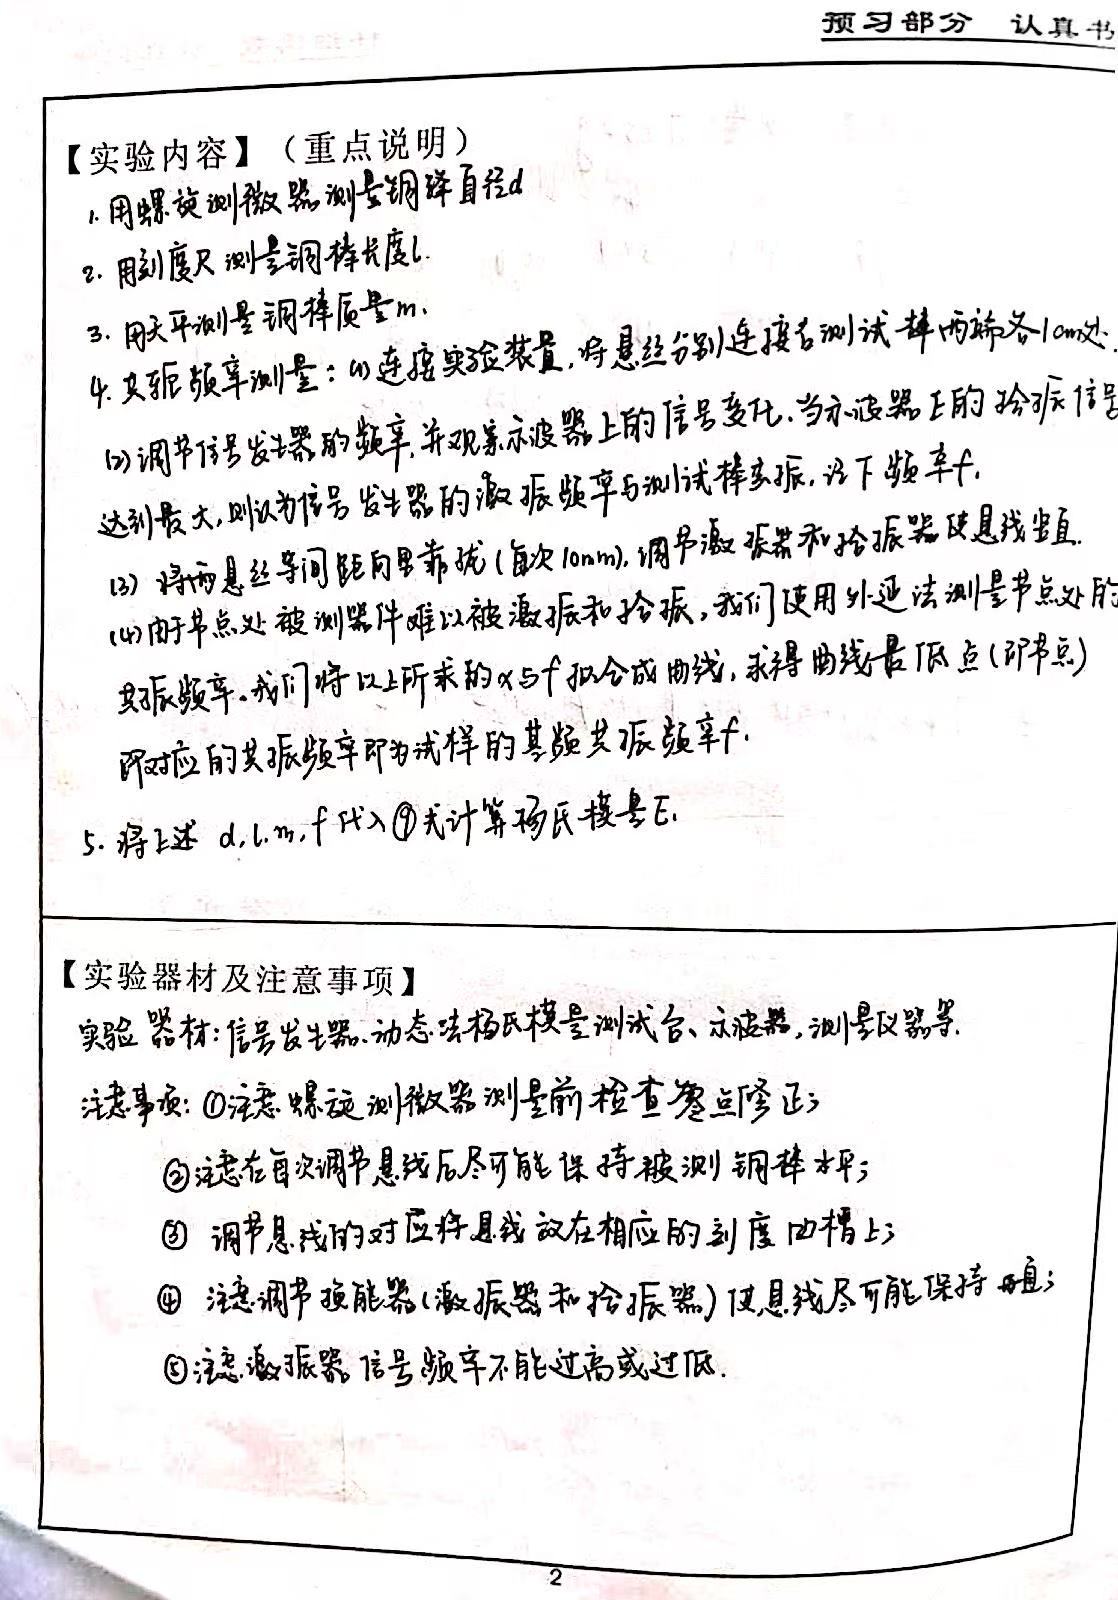 预习部分 认真书
【实验内容】（重点说明）
1. 用螺旋测微器测量铜棒直径d
2. 用刻度尺测量铜棒长度l.
3. 用天平测量铜棒质量m.
4. 共振频率测量：(1) 连接实验装置，将悬丝分别连接在测试棒两端各1cm处.
(2) 调节信号发生器的频率，并观察示波器上的信号变化，当示波器上的拾振信号
达到最大，则认为信号发生器的激振频率与测试棒共振，记下频率f.
(3) 将两悬丝等间距向里靠拢（每次10mm），调节激振器和拾振器使悬线竖直.
(4) 由于节点处被测器件难以被激振和拾振，我们使用外延法测量节点处的
共振频率。我们将以上所求的x与f拟合成曲线，求得曲线最低点（即节点）
即对应的共振频率即为试样的基频共振频率f.
5. 将上述 d, l, m, f 代入⑨式计算杨氏模量E.
【实验器材及注意事项】
实验器材：信号发生器、动态法杨氏模量测试台、示波器，测量仪器等.
注意事项：①注意螺旋测微器测量前检查零点修正；
②注意在每次调节悬线后尽可能保持被测铜棒水平；
③ 调节悬线的对应将悬线放在相应的刻度凹槽上；
④ 注意调节换能器（激振器和拾振器）使悬线尽可能保持垂直；
⑤注意激振器信号频率不能过高或过低.
2